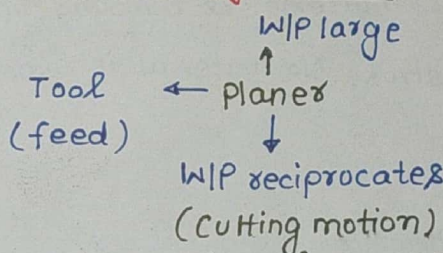 W/P large
Tool ← Planer
(feed)
W/P reciprocates
(Cutting motion)